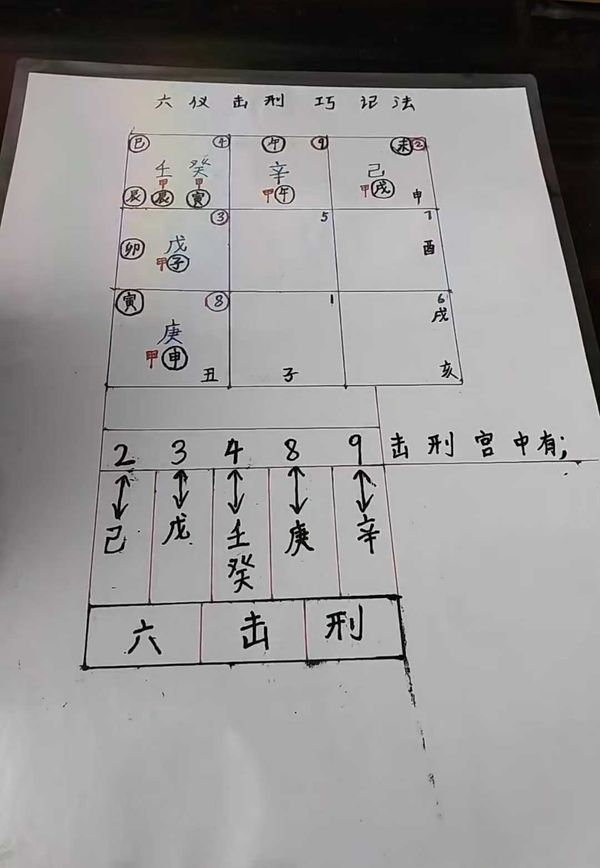 六仪击刑巧记法
巳 4 午 9 未 2
壬 癸 辛 己
甲 甲 甲午 甲戌 申
辰 辰 寅
3 5 7
卯 戊 酉
甲子
寅 8 1 6
庚 戌
甲申
丑 子 亥
2 3 4 8 9 击刑宫中有;
己 戊 壬 庚 辛
癸
六 击 刑